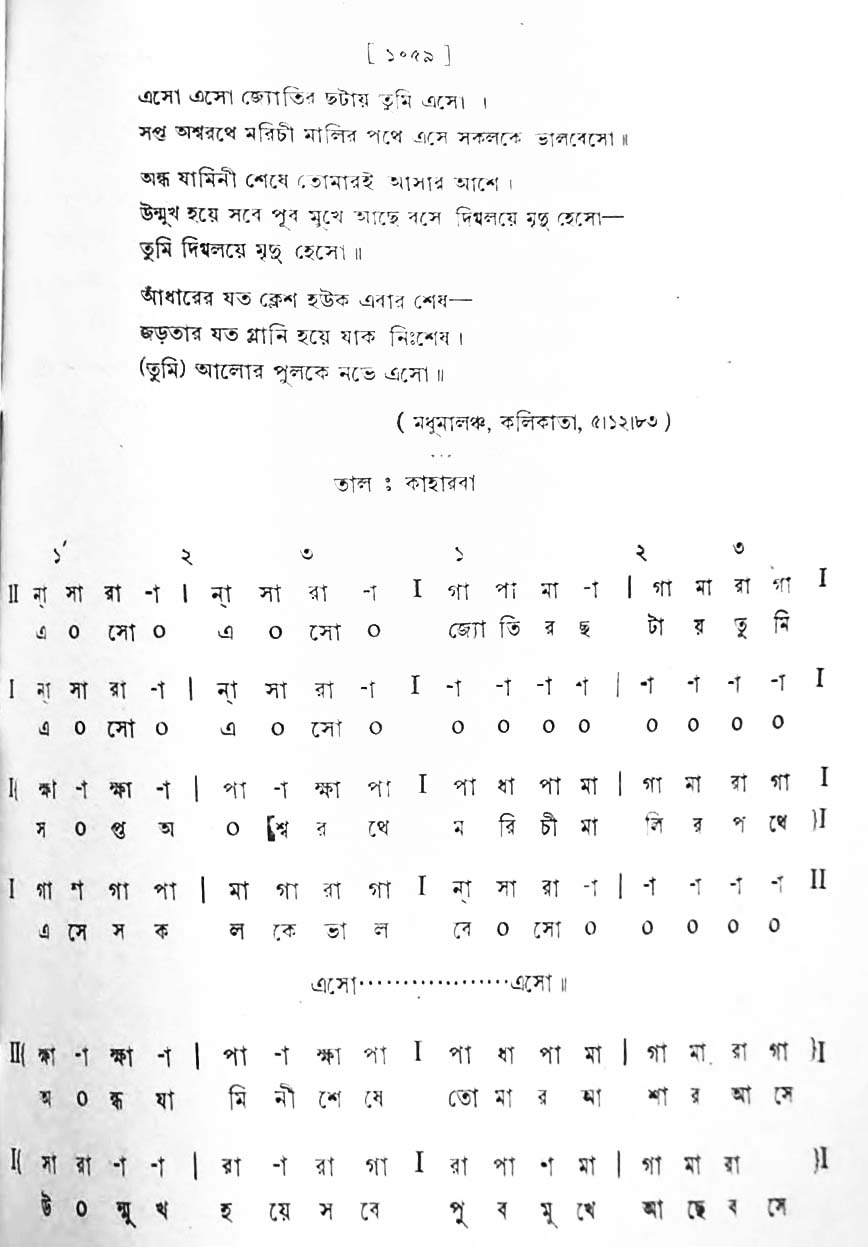 [ ১০৫৯ ]
এসো এসো জ্যোতির ছটায় তুমি এসো ।
সপ্ত অশ্বরথে মরিচী মালির পথে এসে সকলকে ভালবেসো ॥
অন্ধ যামিনী শেষে তোমারই আসার আশে ।
উন্মুখ হয়ে সবে পূব মুখে আছে বসে দিগ্বলয়ে মৃদু হেসো—
তুমি দিগ্বলয়ে মৃদু হেসো ॥
আঁধারের যত ক্লেশ হউক এবার শেষ—
জড়তার যত গ্লানি হয়ে যাক নিঃশেষ ।
(তুমি) আলোর পুলকে নভে এসো ॥
( মধুমালঞ্চ, কলিকাতা, ৫।১২।৮৩ )
...
তাল ঃ কাহারবা
১´ ২ ৩ ১ ২ ৩
II ন্া সা রা -া | ন্া সা রা -া I গা পা মা -া | গা মা রা গা I
এ ০ সো ০ এ ০ সো ০ জ্যো তি র ছ টা য় তু মি
I ন্া সা রা -া | ন্া সা রা -া I -া -া -া -া | -া -া -া -া I
এ ০ সো ০ এ ০ সো ০ ০ ০ ০ ০ ০ ০ ০ ০
I{ ক্ষা -া ক্ষা -া | পা -া ক্ষা পা I পা ধা পা মা | গা মা রা গা I
স ০ প্ত অ ০ [শ্ব র থে ম রি চী মা লি র প থে }I
I গা -া গা পা | মা গা রা গা I ন্া সা রা -া | -া -া -া -া II
এ সে স ক ল কে ভা ল বে ০ সো ০ ০ ০ ০ ০
এসো··················এসো ॥
II{ ক্ষা -া ক্ষা -া | পা -া ক্ষা পা I পা ধা পা মা | গা মা রা গা }I
অ ০ ন্ধ যা মি নী শে ষে তো মা র আ শা র আ সে
I{ সা রা -া -া | রা -া রা গা I রা পা -া মা | গা মা রা }I
উ ০ ন্মু খ হ য়ে স বে পু ব মু খে আ ছে ব সে